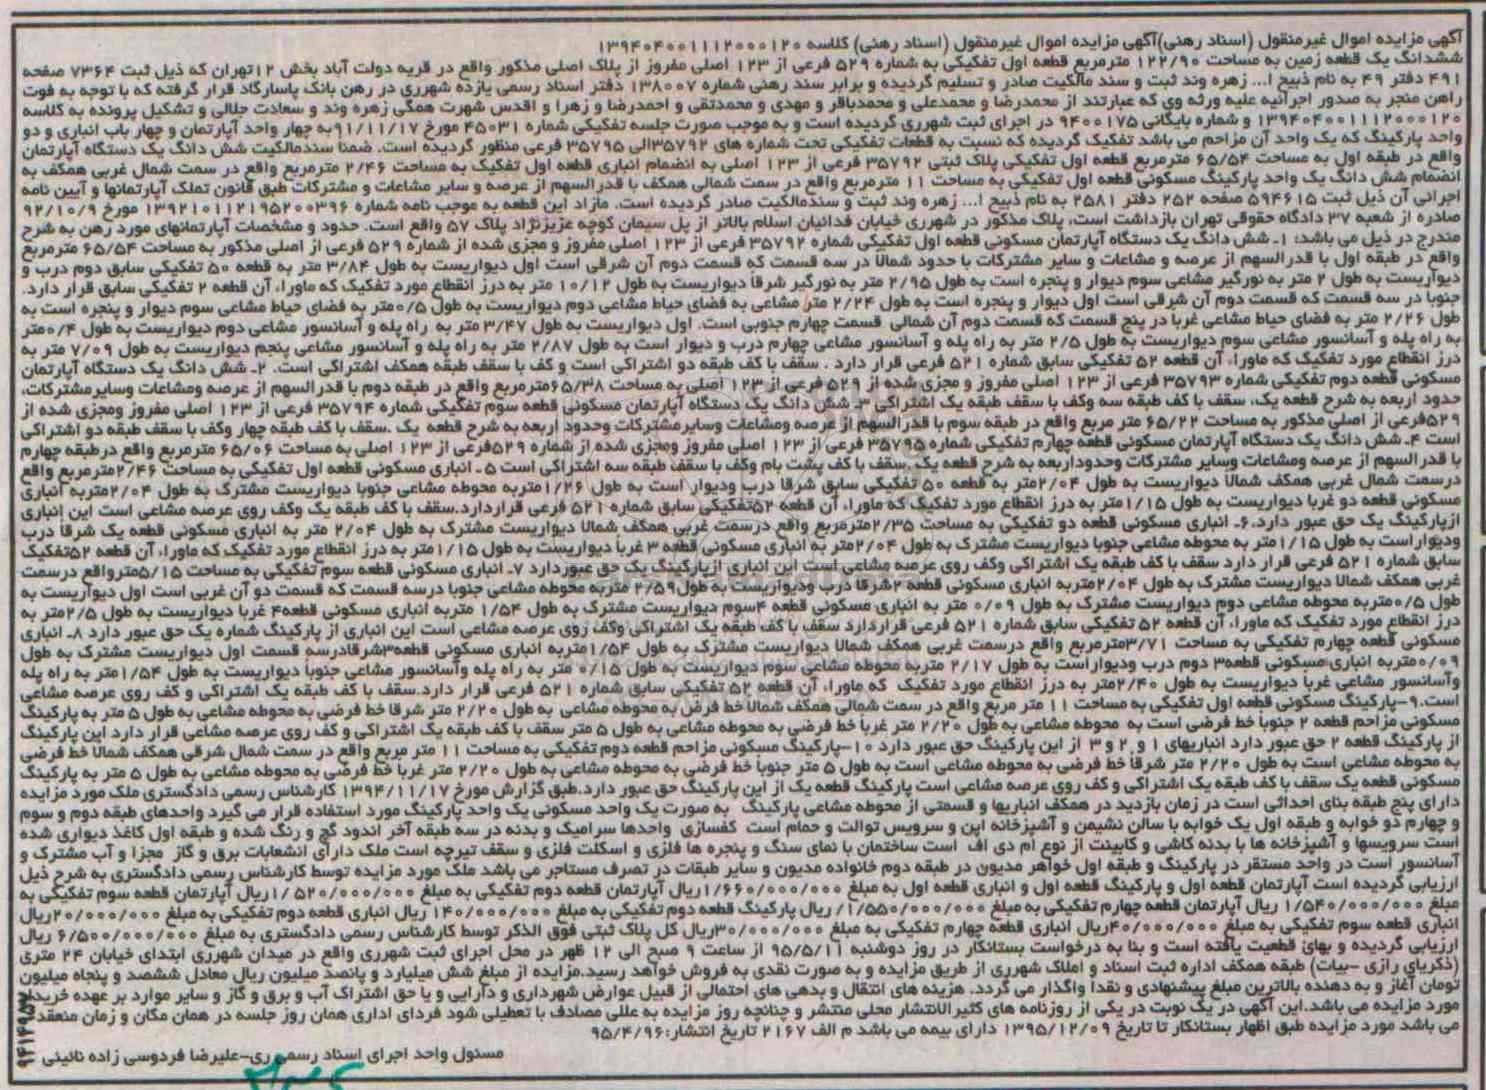 آگهی مزایده اموال غیرمنقول (اسناد رهنی)آگهی مزایده اموال غیرمنقول (اسناد رهنی) کلاسه ۱۳۹۴۰۴۰۰۱۱۱۲۰۰۰۱۲۰
ششدانگ یک قطعه زمین به مساحت ۱۲۲/۹۰ مترمربع قطعه اول تفکیکی به شماره ۵۲۹ فرعی از ۱۲۳ اصلی مفروز از پلاک اصلی مذکور واقع در قریه دولت آباد بخش ۱۲تهران که ذیل ثبت ۷۳۶۴ صفحه
۴۹۱ دفتر ۴۹ به نام ذبیح ا... زهره وند ثبت و سند مالکیت صادر و تسلیم گردیده و برابر سند رهنی شماره ۱۳۸۰۰۷ دفتر اسناد رسمی یازده شهرری در رهن بانک پاسارگاد قرار گرفته که با توجه به فوت
راهن منجر به صدور اجرائیه علیه ورثه وی که عبارتند از محمدرضا و محمدعلی و محمدباقر و مهدی و محمدتقی و احمدرضا و زهرا و اقدس شهرت همگی زهره وند و سعادت جلالی و تشکیل پرونده به کلاسه
۱۳۹۴۰۴۰۰۱۱۱۲۰۰۰۱۲۰ و شماره بایگانی ۹۴۰۰۱۷۵ در اجرای ثبت شهرری گردیده است و به موجب صورت جلسه تفکیکی شماره ۴۵۰۳۱ مورخ ۹۱/۱۱/۱۷به چهار واحد آپارتمان و چهار باب انباری و دو
واحد پارکینگ که یک واحد آن مزاحم می باشد تفکیک گردیده که نسبت به قطعات تفکیکی تحت شماره های ۳۵۷۹۲الی ۳۵۷۹۵ فرعی منظور گردیده است. ضمنا سندمالکیت شش دانگ یک دستگاه آپارتمان
واقع در طبقه اول به مساحت ۶۵/۵۴ مترمربع قطعه اول تفکیکی پلاک ثبتی ۳۵۷۹۲ فرعی از ۱۲۳ اصلی به انضمام انباری قطعه اول تفکیک به مساحت ۲/۴۶ مترمربع واقع در سمت شمال غربی همکف به
انضمام شش دانگ یک واحد پارکینگ مسکونی قطعه اول تفکیکی به مساحت ۱۱ مترمربع واقع در سمت شمالی همکف با قدرالسهم از عرصه و سایر مشاعات و مشترکات طبق قانون تملک آپارتمانها و آیین نامه
اجرائی آن ذیل ثبت ۵۹۴۶۱۵ صفحه ۲۵۲ دفتر ۲۵۸۱ به نام ذبیح ا... زهره وند ثبت و سندمالکیت صادر گردیده است. مازاد این قطعه به موجب نامه شماره ۱۳۹۲۱۰۱۱۲۱۹۵۲۰۰۳۹۶ مورخ ۹۲/۱۰/۹
صادره از شعبه ۳۷ دادگاه حقوقی تهران بازداشت است، پلاک مذکور در شهرری خیابان فدائیان اسلام بالاتر از پل سیمان کوچه عزیزنژاد پلاک ۵۷ واقع است. حدود و مشخصات آپارتمانهای مورد رهن به شرح
مندرج در ذیل می باشد: ۱ـ شش دانگ یک دستگاه آپارتمان مسکونی قطعه اول تفکیکی شماره ۳۵۷۹۲ فرعی از ۱۲۳ اصلی مفروز و مجزی شده از شماره ۵۲۹ فرعی از اصلی مذکور به مساحت ۶۵/۵۴ مترمربع
واقع در طبقه اول با قدرالسهم از عرصه و مشاعات و سایر مشترکات با حدود شمالاً در سه قسمت که قسمت دوم آن شرقی است اول دیواریست به طول ۳/۸۴ متر به قطعه ۵۰ تفکیکی سابق دوم درب و
دیواریست به طول ۲ متر به نورگیر مشاعی سوم دیوار و پنجره است به طول ۲/۹۵ متر به نورگیر شرقاً دیواریست به طول ۱۰/۱۲ متر به درز انقطاع مورد تفکیک که ماوراء آن قطعه ۲ تفکیکی سابق قرار دارد.
جنوبا در سه قسمت که قسمت دوم آن شرقی است اول دیوار و پنجره است به طول ۲/۲۴ متر مشاعی به فضای حیاط مشاعی دوم دیواریست به طول ۰/۵متر به فضای حیاط مشاعی سوم دیوار و پنجره است به
طول ۲/۲۶ متر به فضای حیاط مشاعی غربا در پنج قسمت که قسمت دوم آن شمالی قسمت چهارم جنوبی است. اول دیواریست به طول ۳/۴۷ متر به راه پله و آسانسور مشاعی دوم دیواریست به طول ۰/۴متر
به راه پله و آسانسور مشاعی سوم دیواریست به طول ۲/۵ متر به راه پله و آسانسور مشاعی چهارم درب و دیوار است به طول ۲/۸۷ متر به راه پله و آسانسور مشاعی پنجم دیواریست به طول ۷/۰۹ متر به
درز انقطاع مورد تفکیک که ماوراء آن قطعه ۵۲ تفکیکی سابق شماره ۵۲۱ فرعی قرار دارد . سقف با کف طبقه دو اشتراکی است و کف با سقف طبقه همکف اشتراکی است. ۲ـ شش دانگ یک دستگاه آپارتمان
مسکونی قطعه دوم تفکیکی شماره ۳۵۷۹۳ فرعی از ۱۲۳ اصلی مفروز و مجزی شده از ۵۲۹ فرعی از ۱۲۳ اصلی به مساحت ۶۵/۳۸مترمربع واقع در طبقه دوم با قدرالسهم از عرصه ومشاعات وسایرمشترکات،
حدود اربعه به شرح قطعه یک، سقف با کف طبقه سه وکف با سقف طبقه یک اشتراکی ۳ـ شش دانگ یک دستگاه آپارتمان مسکونی قطعه سوم تفکیکی شماره ۳۵۷۹۴ فرعی از ۱۲۳ اصلی مفروز ومجزی شده از
۵۲۹فرعی از اصلی مذکور به مساحت ۶۵/۲۲ متر مربع واقع در طبقه سوم با قدرالسهم از عرصه ومشاعات وسایرمشترکات وحدود اربعه به شرح قطعه یک .سقف با کف طبقه چهار وکف با سقف طبقه دو اشتراکی
است ۴ـ شش دانگ یک دستگاه آپارتمان مسکونی قطعه چهارم تفکیکی شماره ۳۵۷۹۵ فرعی از ۱۲۳ اصلی مفروز ومجزی شده از شماره ۵۲۹فرعی از ۱۲۳ اصلی به مساحت ۶۵/۰۶ مترمربع واقع درطبقه چهارم
با قدرالسهم از عرصه ومشاعات وسایر مشترکات وحدوداربعه به شرح قطعه یک .سقف با کف پشت بام وکف با سقف طبقه سه اشتراکی است ۵ـ انباری مسکونی قطعه اول تفکیکی به مساحت ۲/۴۶مترمربع واقع
درسمت شمال غربی همکف شمالا دیواریست به طول ۲/۰۴متر به قطعه ۵۰ تفکیکی سابق شرقا درب ودیوار است به طول ۱/۲۶متربه محوطه مشاعی جنوبا دیواریست مشترک به طول ۲/۰۴متربه انباری
مسکونی قطعه دو غربا دیواریست به طول ۱/۱۵متر به درز انقطاع مورد تفکیک که ماوراء آن قطعه ۵۲تفکیکی سابق شماره ۵۲۱ فرعی قراردارد.سقف با کف طبقه یک وکف روی عرصه مشاعی است این انباری
ازپارکینگ یک حق عبور دارد.۶ـ انباری مسکونی قطعه دو تفکیکی به مساحت ۲/۳۵مترمربع واقع درسمت غربی همکف شمالا دیواریست مشترک به طول ۲/۰۴ متر به انباری مسکونی قطعه یک شرقا درب
ودیواراست به طول ۱/۱۵متر به محوطه مشاعی جنوبا دیواریست مشترک به طول ۲/۰۴متر به انباری مسکونی قطعه ۳ غربا دیواریست به طول ۱/۱۵متر به درز انقطاع مورد تفکیک که ماوراء آن قطعه ۵۲تفکیک
سابق شماره ۵۲۱ فرعی قرار دارد سقف با کف طبقه یک اشتراکی وکف روی عرصه مشاعی است این انباری ازپارکینگ یک حق عبوردارد ۷ـ انباری مسکونی قطعه سوم تفکیکی به مساحت ۵/۱۵مترواقع درسمت
غربی همکف شمالا دیواریست مشترک به طول ۲/۰۴متربه انباری مسکونی قطعه ۲شرقا درب ودیواریست به طول۲/۵۹ متربه محوطه مشاعی جنوبا درسه قسمت که قسمت دو آن غربی است اول دیواریست به
طول ۰/۵متربه محوطه مشاعی دوم دیواریست مشترک به طول ۰/۰۹ متر به انباری مسکونی قطعه ۴سوم دیواریست مشترک به طول ۱/۵۴ متربه انباری مسکونی قطعه۴ غربا دیواریست به طول ۲/۵متر به
درز انقطاع مورد تفکیک که ماوراء آن قطعه ۵۲ تفکیکی سابق شماره ۵۲۱ فرعی قراردارد سقف با کف طبقه یک اشتراکی وکف روی عرصه مشاعی است این انباری از پارکینگ شماره یک حق عبور دارد ۸ـ انباری
مسکونی قطعه چهارم تفکیکی به مساحت ۳/۷۱مترمربع واقع درسمت غربی همکف شمالا دیواریست مشترک به طول ۱/۵۴متربه انباری مسکونی قطعه۳شرقادرسه قسمت اول دیواریست مشترک به طول
۰/۰۹متربه انباری مسکونی قطعه۳ دوم درب ودیواراست به طول ۲/۱۷ متربه محوطه مشاعی سوم دیواریست به طول ۰/۱۵ متر به راه پله وآسانسور مشاعی جنوباً دیواریست به طول ۱/۵۴متر به راه پله
وآسانسور مشاعی غرباً دیواریست به طول ۲/۴۰متر به درز انقطاع مورد تفکیک که ماوراء آن قطعه ۵۲ تفکیکی سابق شماره ۵۲۱ فرعی قرار دارد.سقف با کف طبقه یک اشتراکی و کف روی عرصه مشاعی
است.۹-پارکینگ مسکونی قطعه اول تفکیکی به مساحت ۱۱ متر مربع واقع در سمت شمالی همکف شمالاً خط فرضی به محوطه مشاعی به طول ۲/۲۰ متر شرقا خط فرضی به محوطه مشاعی به طول ۵ متر به پارکینگ
مسکونی مزاحم قطعه ۲ جنوبا خط فرضی است به محوطه مشاعی به طول ۲/۲۰ متر غرباً خط فرضی به محوطه مشاعی به طول ۵ متر سقف با کف طبقه یک اشتراکی و کف روی عرصه مشاعی قرار دارد این پارکینگ
از پارکینگ قطعه ۲ حق عبور دارد انباریهای ۱ و ۲ و ۳ از این پارکینگ حق عبور دارد ۱۰-پارکینگ مسکونی مزاحم قطعه دوم تفکیکی به مساحت ۱۱ متر مربع واقع در سمت شمال شرقی همکف شمالا خط فرضی
به محوطه مشاعی است به طول ۲/۲۰ متر شرقا خط فرضی به محوطه مشاعی است به طول ۵ متر جنوباً خط فرضی به محوطه مشاعی به طول ۲/۲۰ متر غرباً خط فرضی به محوطه مشاعی به طول ۵ متر به پارکینگ
مسکونی قطعه یک سقف با کف طبقه یک اشتراکی و کف روی عرصه مشاعی است پارکینگ قطعه یک از این پارکینگ حق عبور دارد.طبق گزارش مورخ ۱۳۹۴/۱۱/۱۷ کارشناس رسمی دادگستری ملک مورد مزایده
دارای پنج طبقه بنای احداثی است در زمان بازدید در همکف انباریها و قسمتی از محوطه مشاعی پارکینگ به صورت یک واحد مسکونی یک واحد پارکینگ مورد استفاده قرار می گیرد واحدهای طبقه دوم و سوم
و چهارم دو خوابه و طبقه اول یک خوابه با سالن نشیمن و آشپزخانه اپن و سرویس توالت و حمام است کفسازی واحدها سرامیک و بدنه در سه طبقه آخر اندود گچ و رنگ شده و طبقه اول کاغذ دیواری شده
است سرویسها و آشپزخانه ها با بدنه کاشی و کابینت از نوع ام دی اف است ساختمان با نمای سنگ و پنجره ها فلزی و اسکلت فلزی و سقف تیرچه است ملک دارای انشعابات برق و گاز مجزا و آب مشترک و
آسانسور است در واحد مستقر در پارکینگ و طبقه اول خواهر مدیون در طبقه دوم خانواده مدیون و سایر طبقات در تصرف مستاجر می باشد ملک مورد مزایده توسط کارشناس رسمی دادگستری به شرح ذیل
ارزیابی گردیده است آپارتمان قطعه اول و پارکینگ قطعه اول و انباری قطعه اول به مبلغ ۱/۶۶۰/۰۰۰/۰۰۰ریال آپارتمان قطعه دوم تفکیکی به مبلغ ۱/۵۲۰/۰۰۰/۰۰۰ریال آپارتمان قطعه سوم تفکیکی به
مبلغ ۱/۵۴۰/۰۰۰/۰۰۰ ریال آپارتمان قطعه چهارم تفکیکی به مبلغ ۱/۵۵۰/۰۰۰/۰۰۰/ ریال پارکینگ قطعه دوم تفکیکی به مبلغ ۱۴۰/۰۰۰/۰۰۰ ریال انباری قطعه دوم تفکیکی به مبلغ ۲۰/۰۰۰/۰۰۰ریال
انباری قطعه سوم تفکیکی به مبلغ ۴۰/۰۰۰/۰۰۰ریال انباری قطعه چهارم تفکیکی به مبلغ ۳۰/۰۰۰/۰۰۰ریال کل پلاک ثبتی فوق الذکر توسط کارشناس رسمی دادگستری به مبلغ ۶/۵۰۰/۰۰۰/۰۰۰ ریال
ارزیابی گردیده و بهای قطعیت یافته است و بنا به درخواست بستانکار در روز دوشنبه ۹۵/۵/۱۱ از ساعت ۹ صبح الی ۱۲ ظهر در محل اجرای ثبت شهرری واقع در میدان شهرری ابتدای خیابان ۲۴ متری
(ذکریای رازی -بیات) طبقه همکف اداره ثبت اسناد و املاک شهرری از طریق مزایده و به صورت نقدی به فروش خواهد رسید.مزایده از مبلغ شش میلیارد و پانصد میلیون ریال معادل ششصد و پنجاه میلیون
تومان آغاز و به دهنده بالاترین مبلغ پیشنهادی و نقدا واگذار می گردد. هزینه های انتقال و بدهی های احتمالی از قبیل عوارض شهرداری و دارایی و یا حق اشتراک آب و برق و گاز و سایر موارد بر عهده خریدار
مورد مزایده می باشد.این آگهی در یک نوبت در یکی از روزنامه های کثیرالانتشار محلی منتشر و چنانچه روز مزایده به عللی مصادف با تعطیلی شود فردای اداری همان روز جلسه در همان مکان و زمان منعقد
می باشد مورد مزایده طبق اظهار بستانکار تا تاریخ ۱۳۹۵/۱۲/۰۹ دارای بیمه می باشد م الف ۲۱۶۷ تاریخ انتشار:۹۵/۴/۹۶
مسئول واحد اجرای اسناد رسمی ری-علیرضا فردوسی زاده نائینی